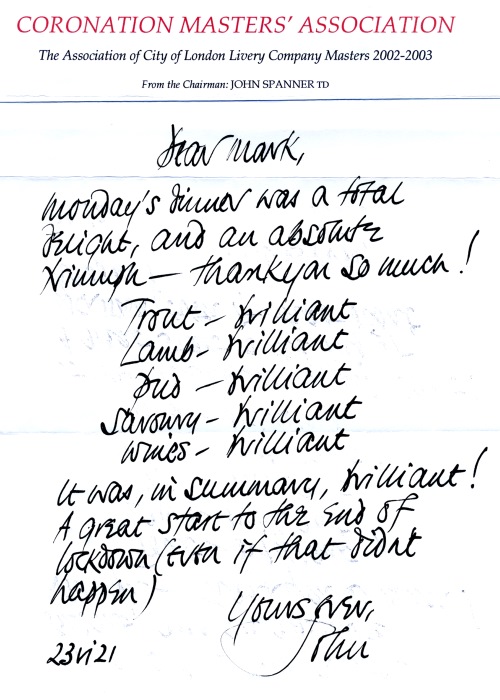 CORONATION MASTERS' ASSOCIATION
The Association of City of London Livery Company Masters 2002-2003
From the Chairman: JOHN SPANNER TD
Dear Mark,
Monday's dinner was a total
delight, and an absolute
triumph – thankyou so much!
Trout – brilliant
Lamb – brilliant
Pud – brilliant
Savoury – brilliant
Wines – brilliant
It was, in summary, brilliant!
A great start to the end of
lockdown (even if that didn't
happen)
Yours ever,
John
23vi21